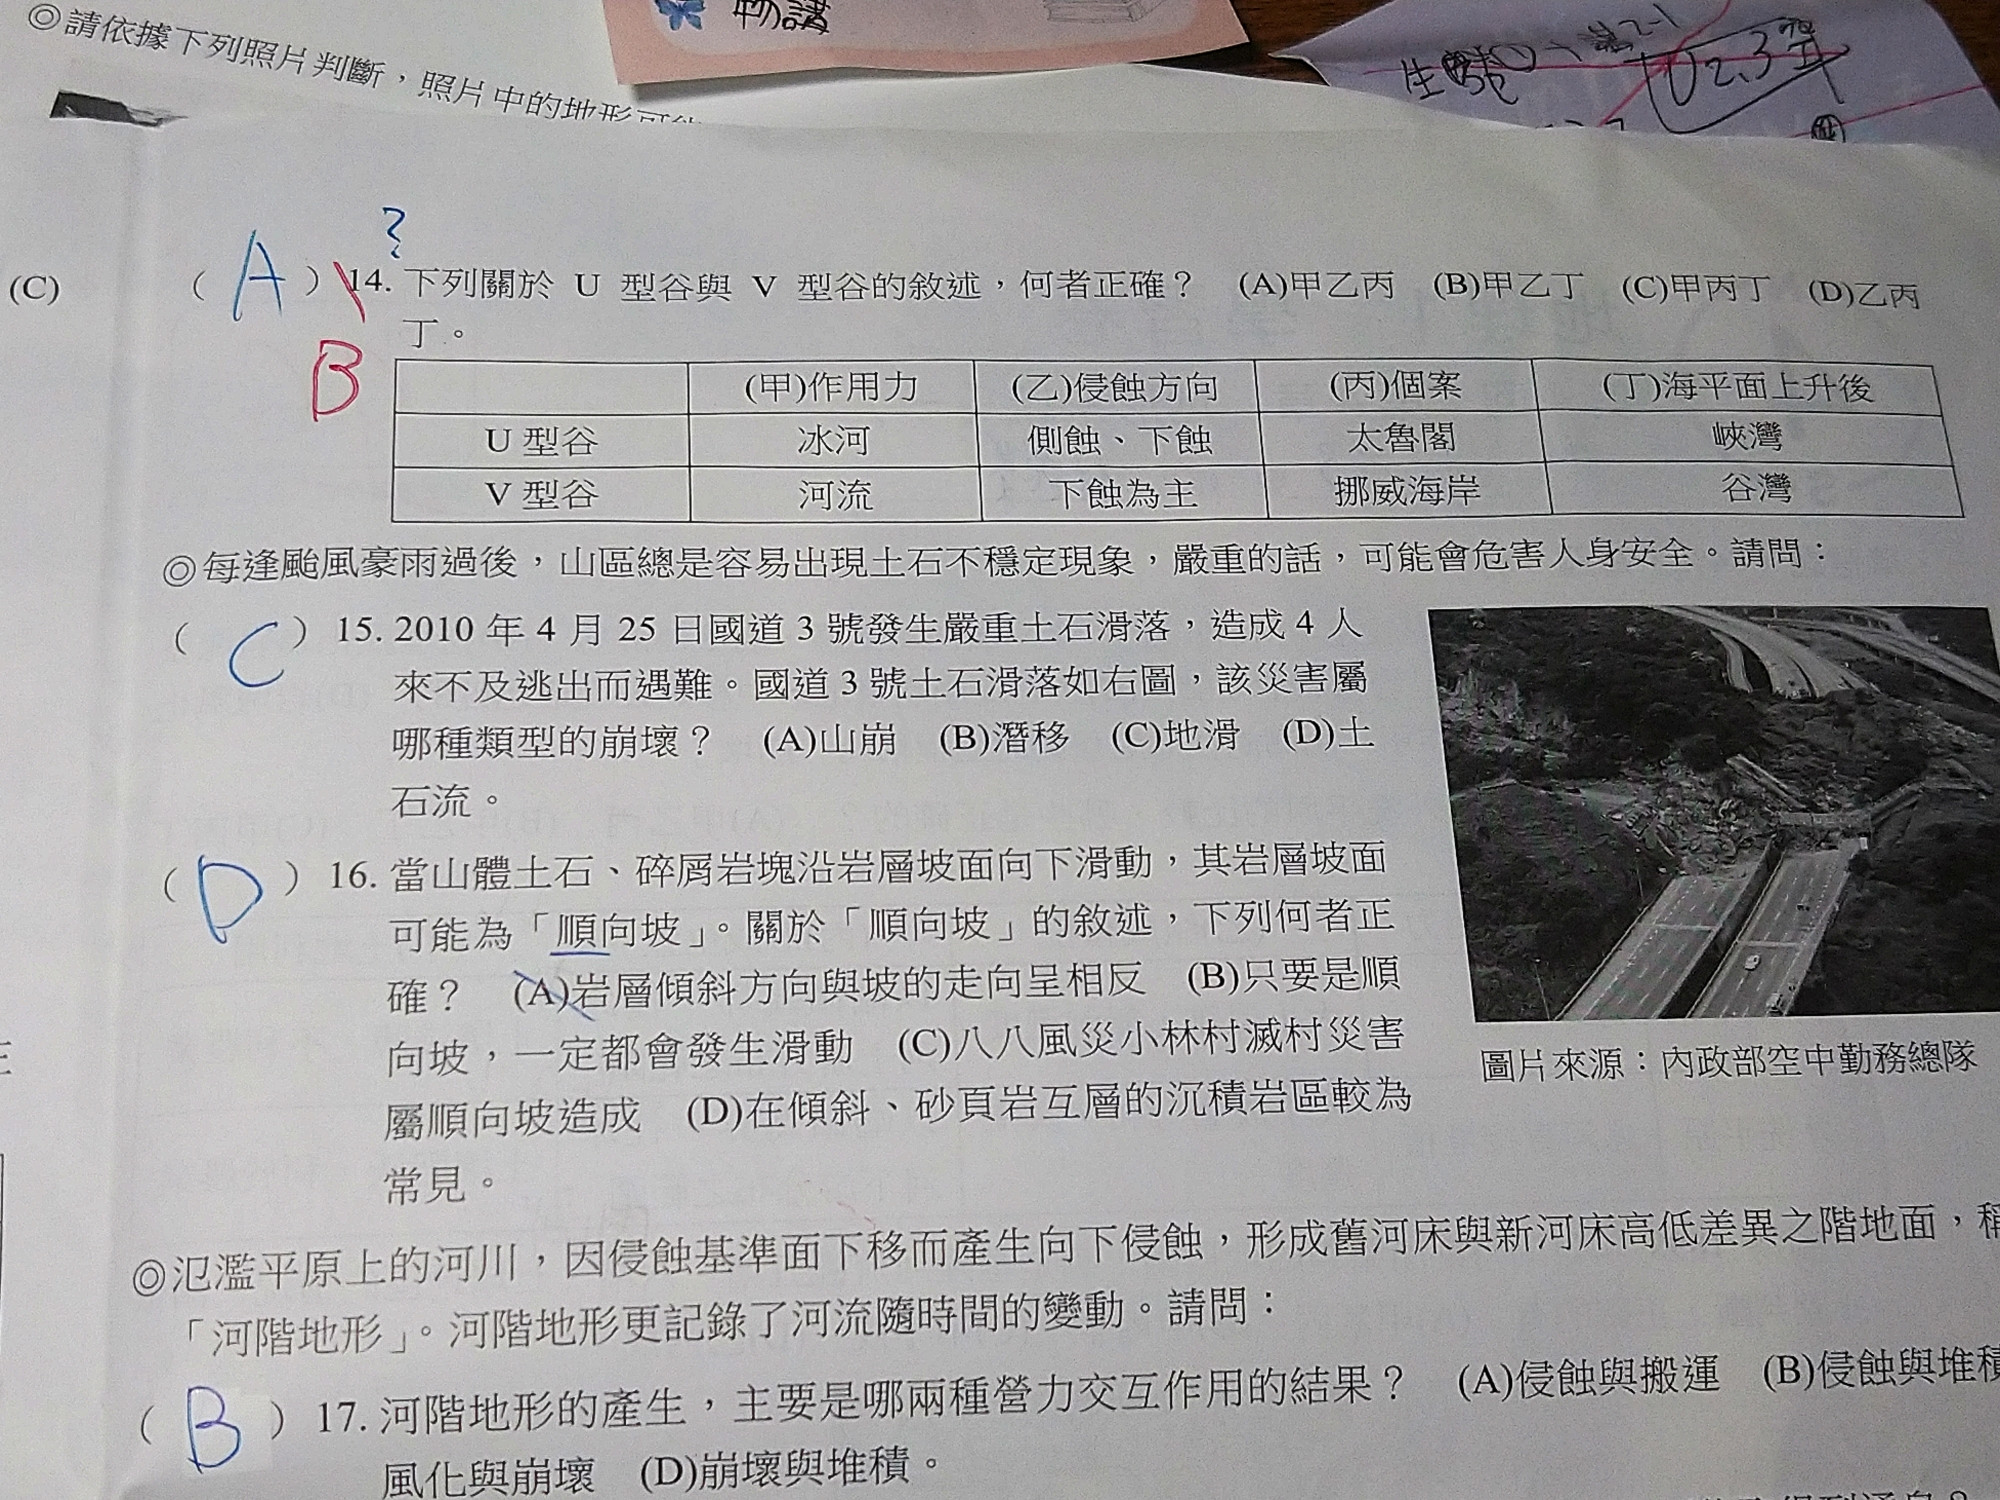 ◎請依據下列照片判斷，照片中的地形可能
物講
(C)
( A ) 14. 下列關於 U 型谷與 V 型谷的敘述，何者正確？ (A)甲乙丙 (B)甲乙丁 (C)甲丙丁 (D)乙丙
?
丁。
B
(甲)作用力 (乙)侵蝕方向 (丙)個案 (丁)海平面上升後
U 型谷 冰河 側蝕、下蝕 太魯閣 峽灣
V 型谷 河流 下蝕為主 挪威海岸 谷灣
◎每逢颱風豪雨過後，山區總是容易出現土石不穩定現象，嚴重的話，可能會危害人身安全。請問：
( C ) 15. 2010 年 4 月 25 日國道 3 號發生嚴重土石滑落，造成 4 人
來不及逃出而遇難。國道 3 號土石滑落如右圖，該災害屬
哪種類型的崩壞？ (A)山崩 (B)潛移 (C)地滑 (D)土
石流。
( D ) 16. 當山體土石、碎屑岩塊沿岩層坡面向下滑動，其岩層坡面
可能為「順向坡」。關於「順向坡」的敘述，下列何者正
確？ (A)岩層傾斜方向與坡的走向呈相反 (B)只要是順
向坡，一定都會發生滑動 (C)八八風災小林村滅村災害
屬順向坡造成 (D)在傾斜、砂頁岩互層的沉積岩區較為
常見。
圖片來源：內政部空中勤務總隊
◎氾濫平原上的河川，因侵蝕基準面下移而產生向下侵蝕，形成舊河床與新河床高低差異之階地面，稱
「河階地形」。河階地形更記錄了河流隨時間的變動。請問：
( B ) 17. 河階地形的產生，主要是哪兩種營力交互作用的結果？ (A)侵蝕與搬運 (B)侵蝕與堆積
風化與崩壞 (D)崩壞與堆積。